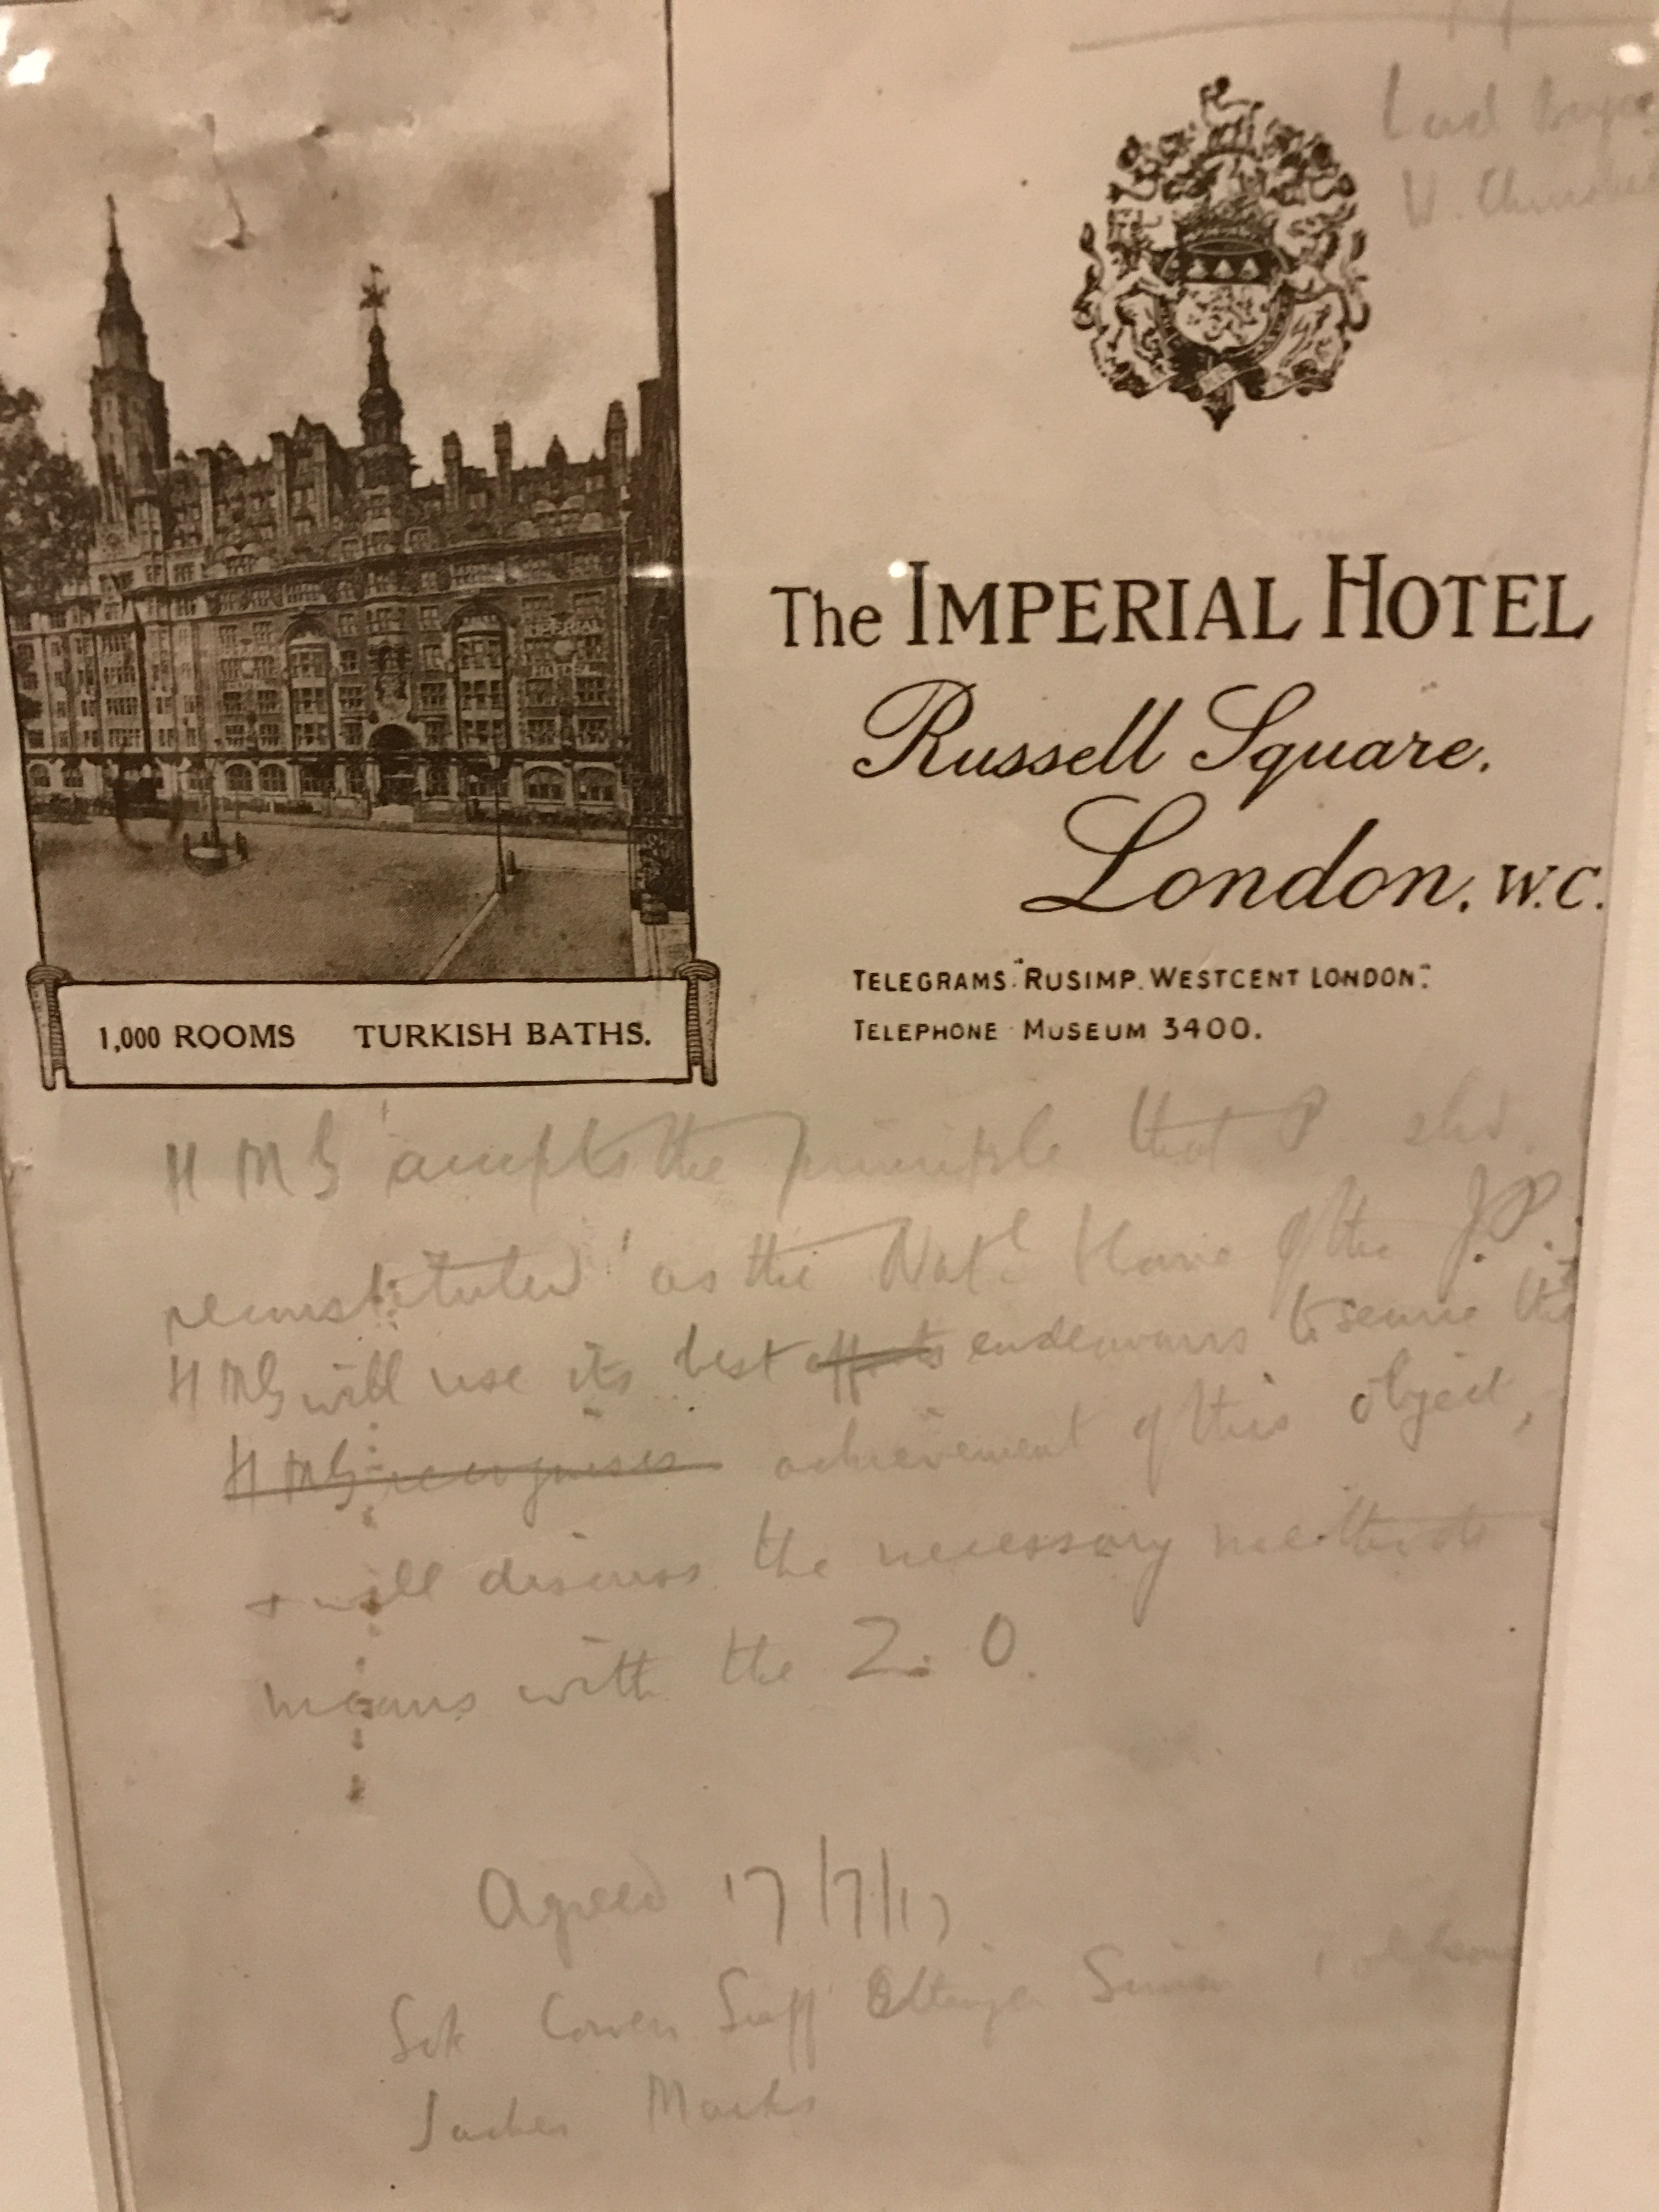 Lord
W.
The IMPERIAL HOTEL
Russell Square.
London. W.C.
TELEGRAMS: "RUSIMP. WESTCENT LONDON".
TELEPHONE · MUSEUM 3400.
1,000 ROOMS TURKISH BATHS.
H M G accepts the principle that P shd.
reconstituted as the Natl Home of the J.P.
H M G will use its best efforts endeavours to secure the
H M G recognises achievement of this object,
+ will discuss the necessary methods
means with the Z. O.
Agreed 17/7/17
Sok Cowen Ettinger Simon
Sacher Marks